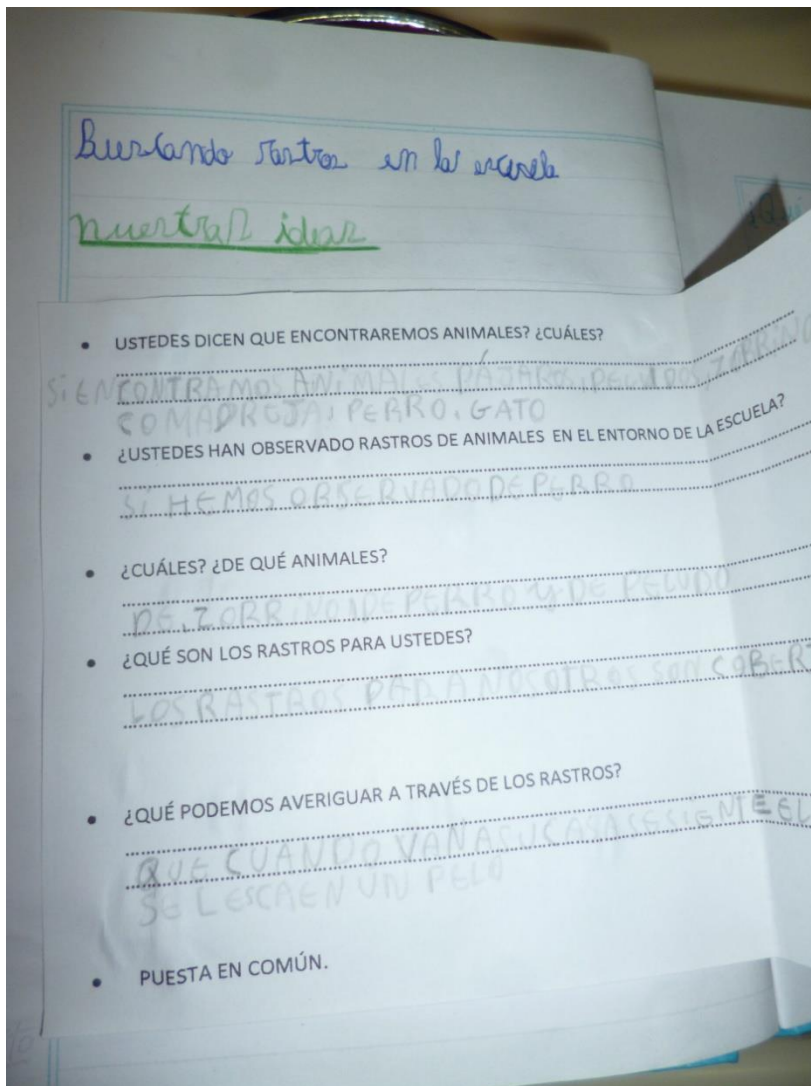 Buscando rastros en la escuela
nuestras ideas
• USTEDES DICEN QUE ENCONTRAREMOS ANIMALES? ¿CUÁLES?
Si ENCONTRAMOS ANIMALES PÁJAROS, PELUDOS, ZORRINO
COMADREJA, PERRO, GATO
• ¿USTEDES HAN OBSERVADO RASTROS DE ANIMALES EN EL ENTORNO DE LA ESCUELA?
Si HEMOS OBSERVADO DE PERRO
• ¿CUÁLES? ¿DE QUÉ ANIMALES?
DE, ZORRINO, DE PERRO Y DE PELUDO
• ¿QUÉ SON LOS RASTROS PARA USTEDES?
LOS RASTROS PARA NOSOTROS SON COBERT
• ¿QUÉ PODEMOS AVERIGUAR A TRAVÉS DE LOS RASTROS?
QUE CUANDO VAN A SU CASA SE SIENTE EL
SE LESCAEN UN PELO
• PUESTA EN COMÚN.
¿Qué